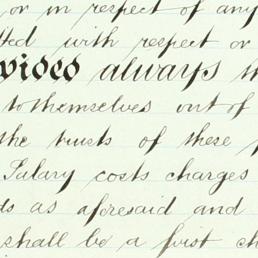 or in respect of any
ted with respect or
vided always
to themselves out of
the trusts of these
Salary costs charges
ds as aforesaid and
shall be a first ch